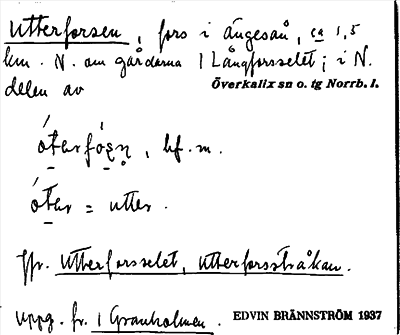 Utterforsen, fors i ängesån, ca 1,5
km. N. om gårdarna 1 Långforsselet; i N.
delen av
Överkalix sn o. tg Norrb. l.
ótərfósn̥, bf. m.
ótər = utter.
Jfr. Utterforsselet, Utterforsstråkan.
Uppg. fr. 1 Granholmen.
EDVIN BRÄNNSTRÖM 1937